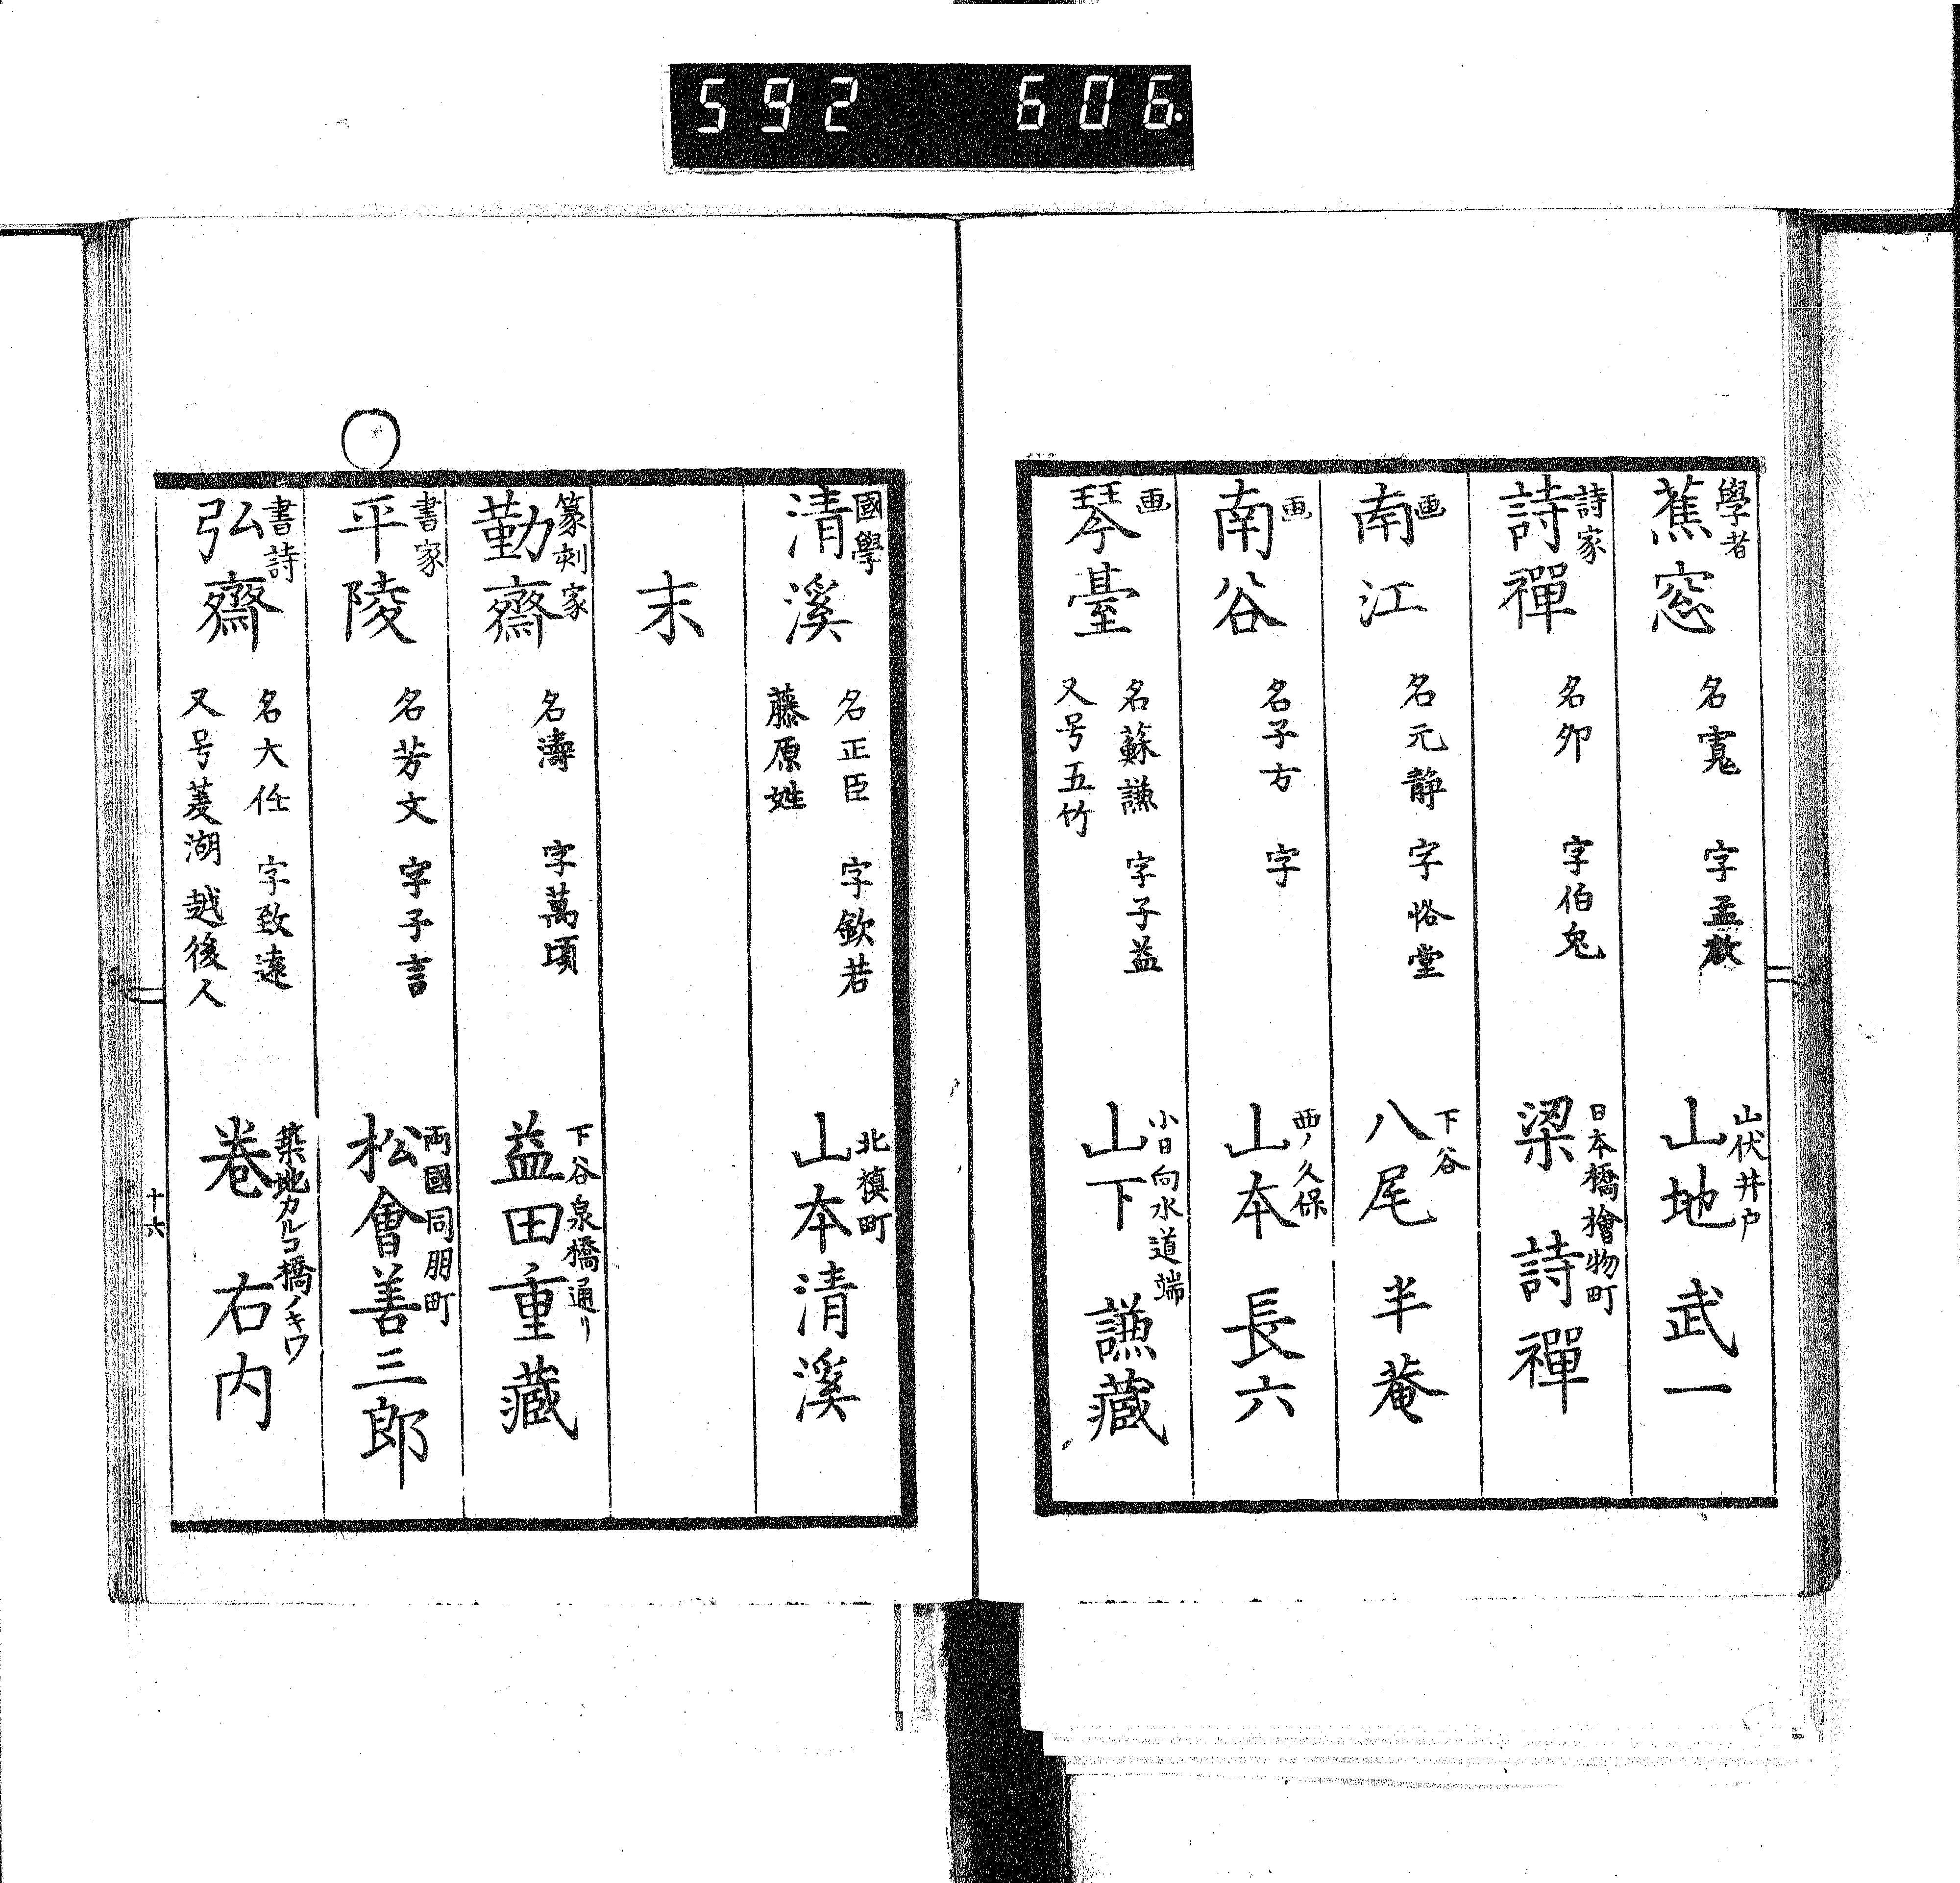 592 606.
學者
蕉窓 名寬 字孟教 山伏井戸 山地 武一
詩家
詩禪 名卯 字伯兔 日本橋檜物町 梁 詩禪
画
南江 名元靜 字恪堂 下谷 八尾 半菴
画
南谷 名子方 字 西ノ久保 山本 長六
画
琴臺 名蘇謙 字子益 小日向水道端 山下 謙藏
又号五竹
國學
清溪 名正臣 字欽若 北槙町 山本清溪
藤原姓
末
篆刻家
勤齋 名濤 字萬頃 下谷泉橋通リ 益田重藏
書家
平陵 名芳文 字子言 両國同朋町 松會善三郎
書詩
弘齋 名大任 字致遠 築地カルコ橋ノキワ 卷 右内
又号菱湖 越後人
十六